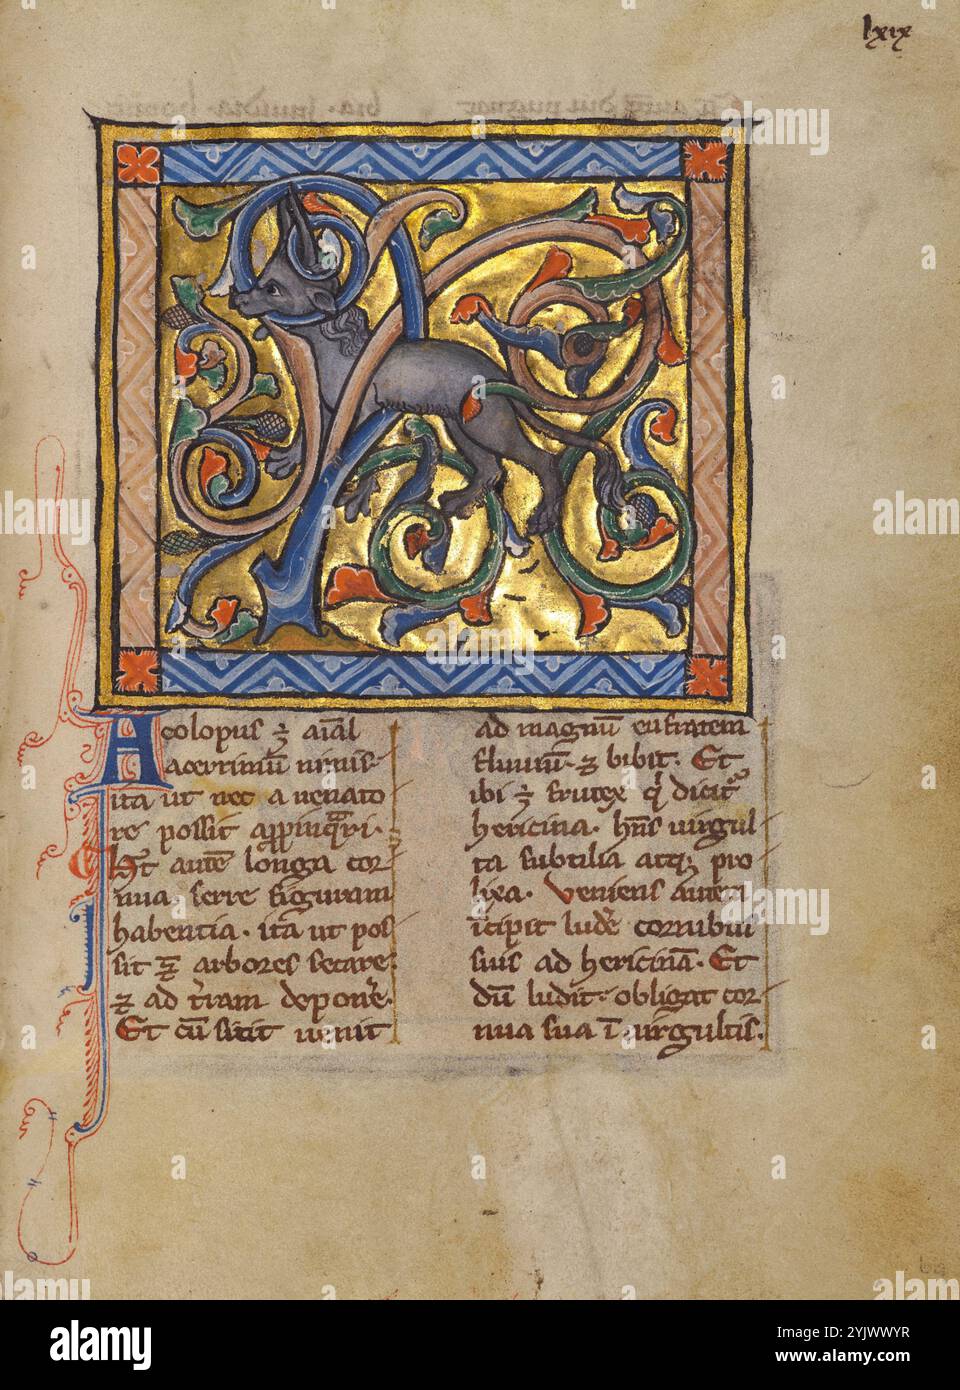 lxix
Acolopus ÷ aīal
acerrimū nimis·
ita ut nec a venato
re possit app̄inq̄ri·
Ht autē longa cor
nua· serre figuram
habentia· ita ut pos
sit ⁊ arbores secare·
⁊ ad t̄ram depon̄e·
Et cū sitit uenit
ad magnū eufratem
fluuiū· ⁊ bibit· Et
ibi ÷ frutex q̄ dicit᷑
hericina· hn̄s uirgul
ta subtilia atq; pro
lixa· Veniens autem
īcipit lud̄e cornibus
suis ad hericinā· Et
dū ludit· obligat cor
nua sua ī uirgultis·
alamy
Image ID: 2YJWWYR
www.alamy.com